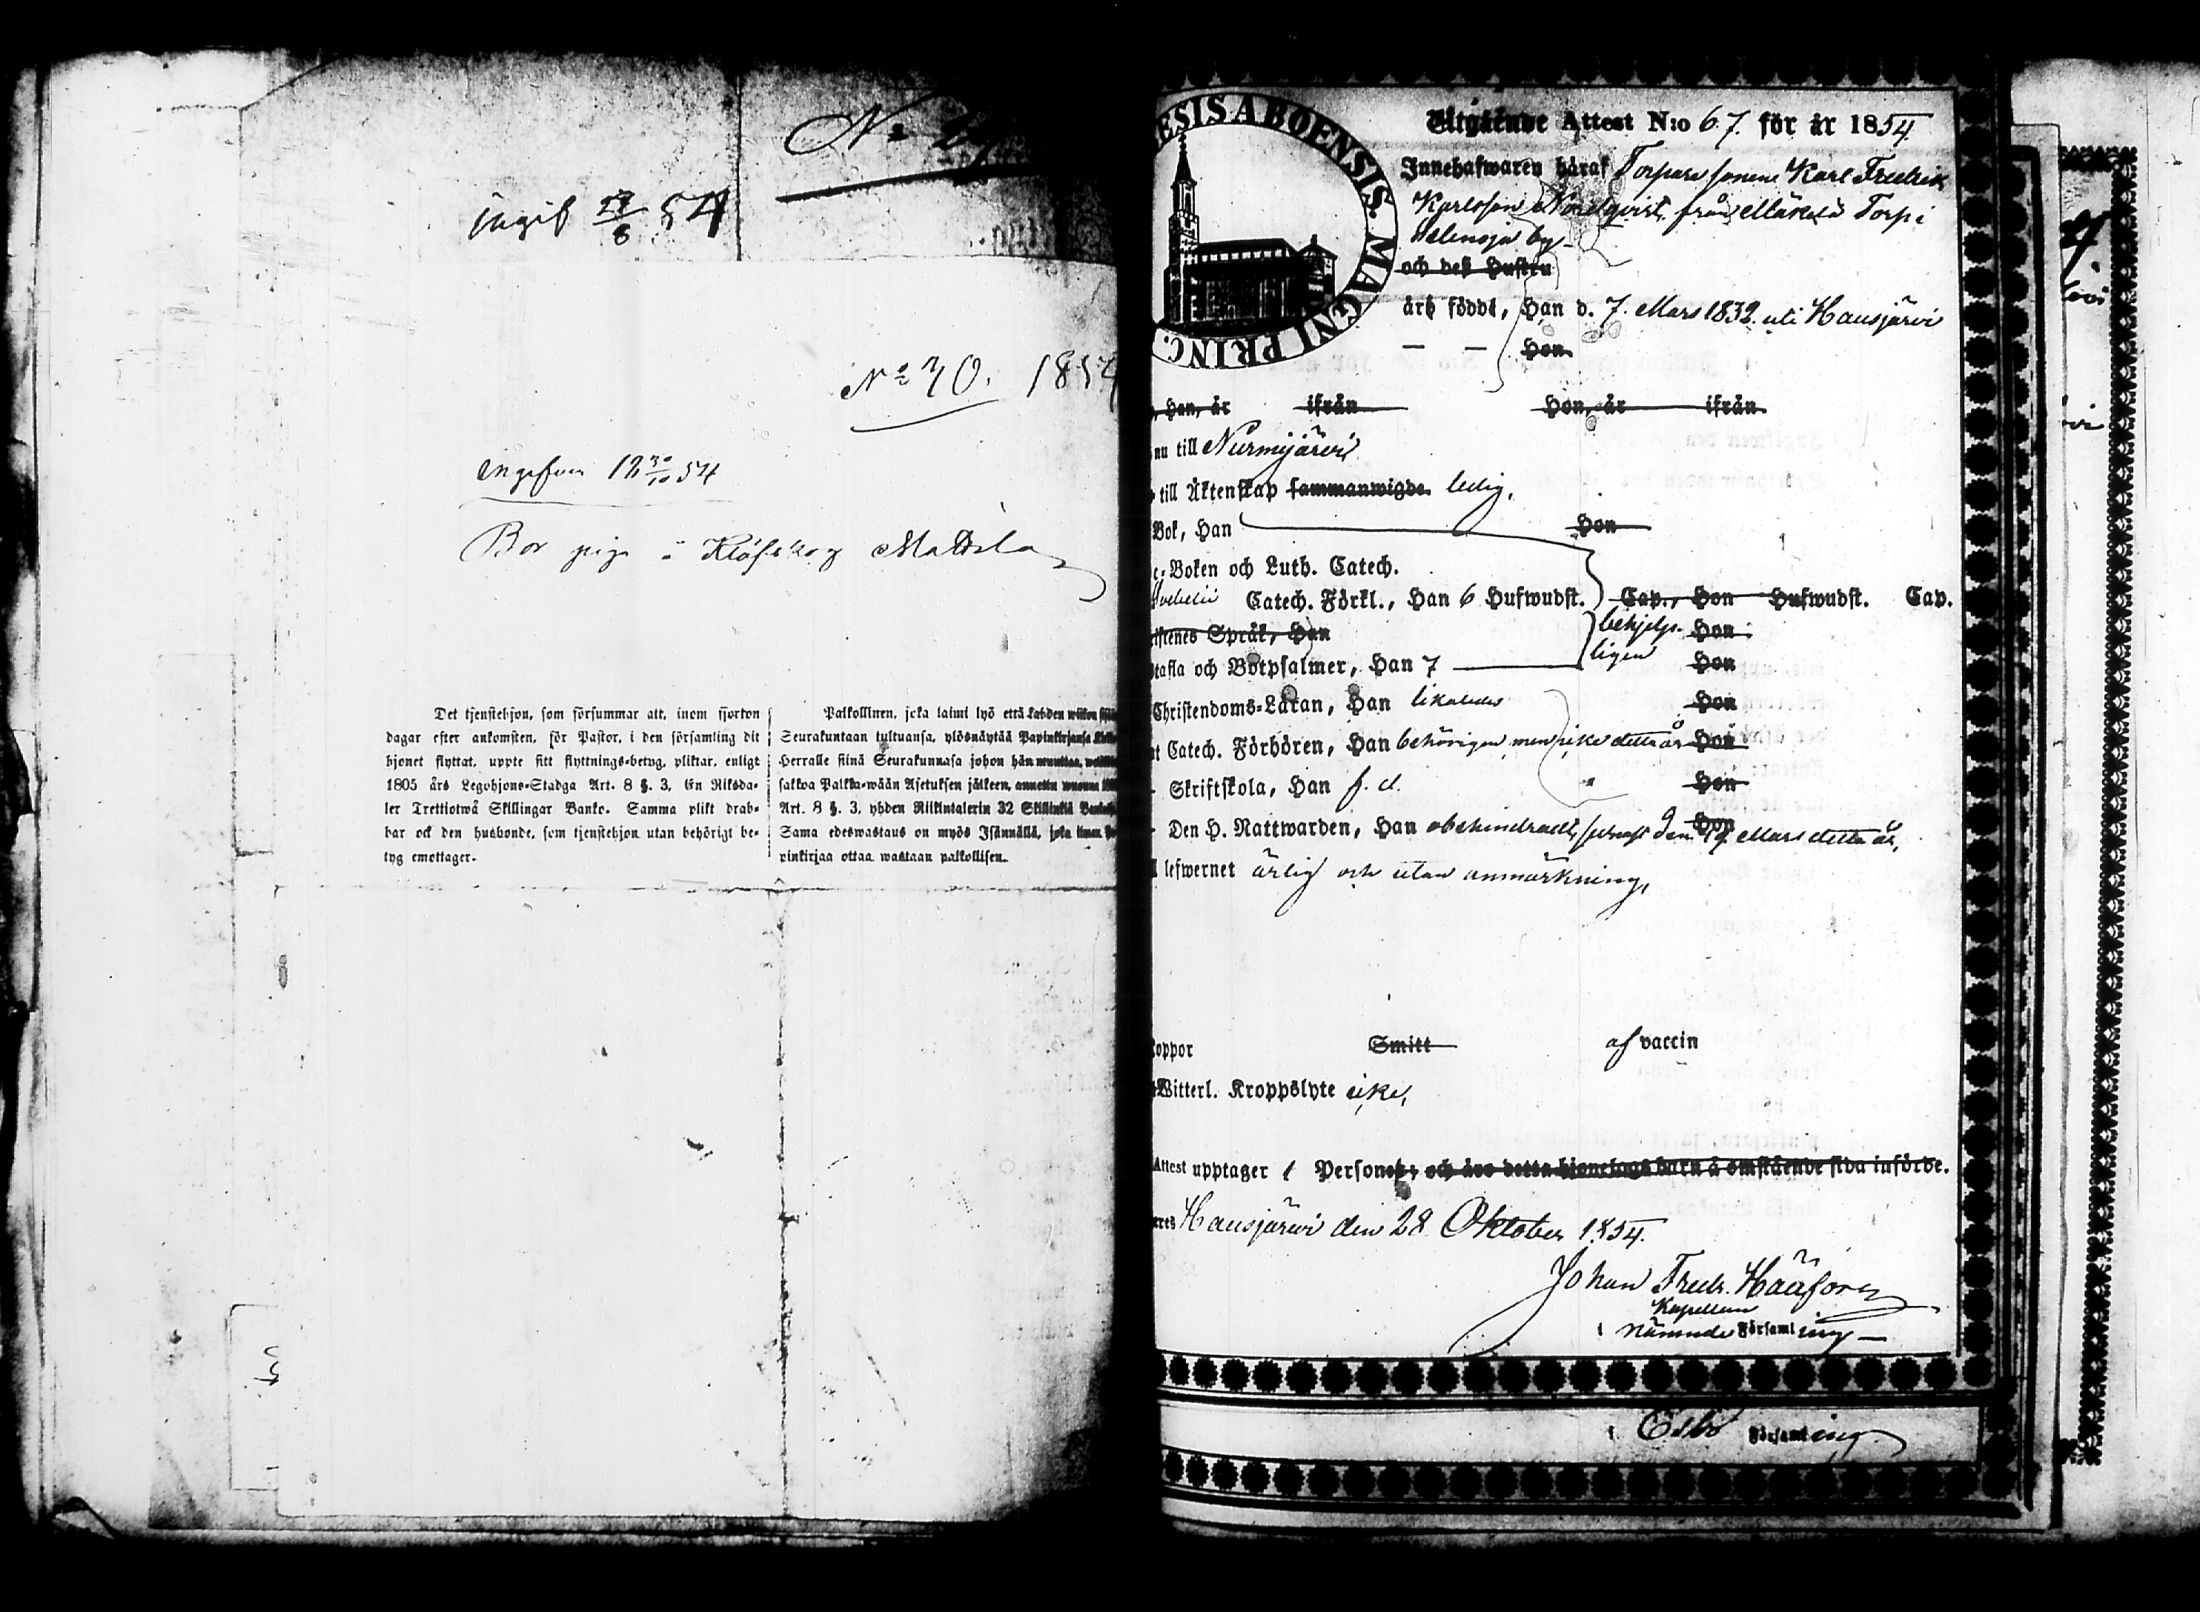 No
ingif 28/8 54
No 70. 1854
Ingifven 12 30/10 54
Bor på Klöfskog Mattila
Det tjenstehjon, som försummar att, inom fjorton
dagar efter ankomsten, för Pastor, i den församling dit
hjonet flyttat, uppte sitt flyttnings-betyg, pliktar, enligt
1805 års Legohjons-Stadga Art. 8 §. 3, En Riksda-
ler Trettiotwå Skillingar Banko. Samma plikt drab-
bar ock den husbonde, som tjenstehjon utan behörigt be-
tyg emottager.
Palkollinen, joka laimi lyö että kahden wiikon
Seurakuntaan tultuansa, ylösnäytää Papinkirjansa
Herralle siinä Seurakunnasa johon hän muuttaa,
sakkoa Palkka-wään Asetuksen jälkeen, annettu wuonna
Art. 8 §. 3, yhden Riikintalerin 32 Skillinkiä
Sama edeswastaus on myös Isännällä, joka ilman
pinkirjaa ottaa wastaan palkollisen.
ESIS ABOENSIS. MAGNI PRINC.
Utgående Attest N:o 67. för år 1854.
Innehafwaren häraf Torpare sonen Karl Fredrik
Karlsson Nordqvist från Märkälä Torp i
by
och deß Hustru
äro födde, Han d. 7. Mars 1832. uti Hausjärvi
— — Hon
, Han, är ifrån Hon, är ifrån
nu till Nurmijärvi
till Äktenskap sammanwigde ledig,
Bok, Han Hon
e-Boken och Luth. Catech.
Svebelii Catech. Förkl., Han 6 Hufwudst. Cap., Hon Hufwudst. Cap.
istenes Språk, Han behjelp- Hon
tafla och Botpsalmer, Han 7 ligen Hon
Christendoms-Läran, Han likaledes Hon
Catech. Förhören, Han behörigen, men icke detta år Hon
Skriftskola, Han f. d. " Hon
Den H. Nattwarden, Han obehindradt, senast den 19 Mars detta år, Hon
lefwernet ärlig och utan anmärkning,
oppor Smitt af vaccin
Witterl. Kroppslyte icke,
Attest upptager 1 Person; och äro detta hjonelags barn å omstående sida införde.
Hausjärvi den 28 Oktober 1854.
Johan Fredr.
Kapellan
i nämnde Församling
i Esbo Församling